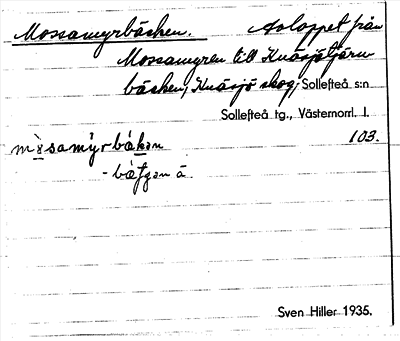 Mossamyrbäcken. Avloppet från
Mossamyren till Knäsjötjärn-
bäcken, Knäsjö skog, Sollefteå s:n
Sollefteå tg., Västernorrl. l.
103.
måsamỳrbäkən
- bäʃgən ä.
Sven Hiller 1935.